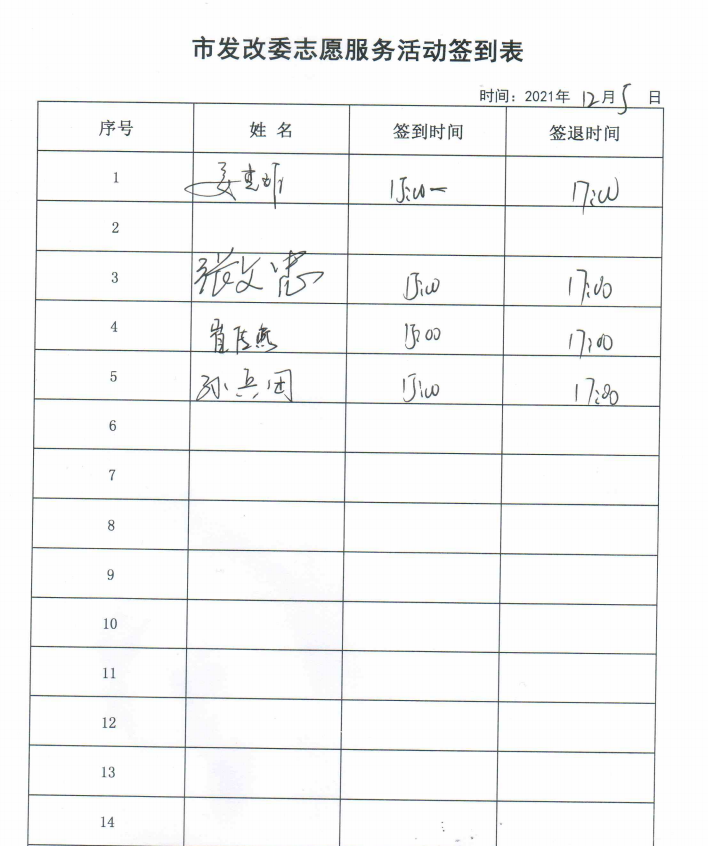 市发改委志愿服务活动签到表
时间：2021年 12月5日
序号 姓名 签到时间 签退时间
1 15:00 17:00
2
3 张文忠 15:00 17:00
4 15:00 17:00
5 孙兵团 15:00 17:00
6
7
8
9
10
11
12
13
14